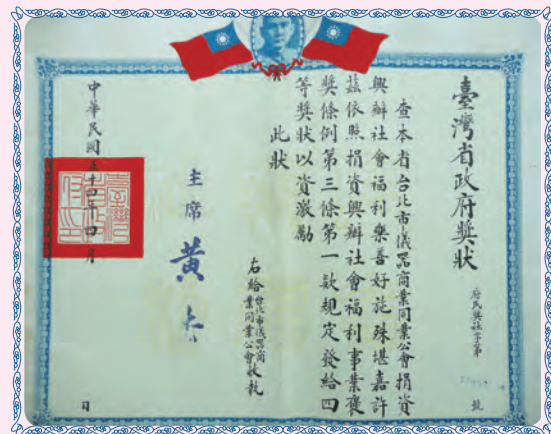 臺灣省政府獎狀
府民興社字第 號
查本省台北市儀器商業同業公會捐資
興辦社會福利樂善好施殊堪嘉許
茲依照捐資興辦社會福利事業褒
獎條例第三條第一款規定發給四
等獎狀以資激勵
此狀
右給台北市儀器商
業同業公會收執
主席 黃杰
中華民國五十四年四月 日
臺灣省政府印